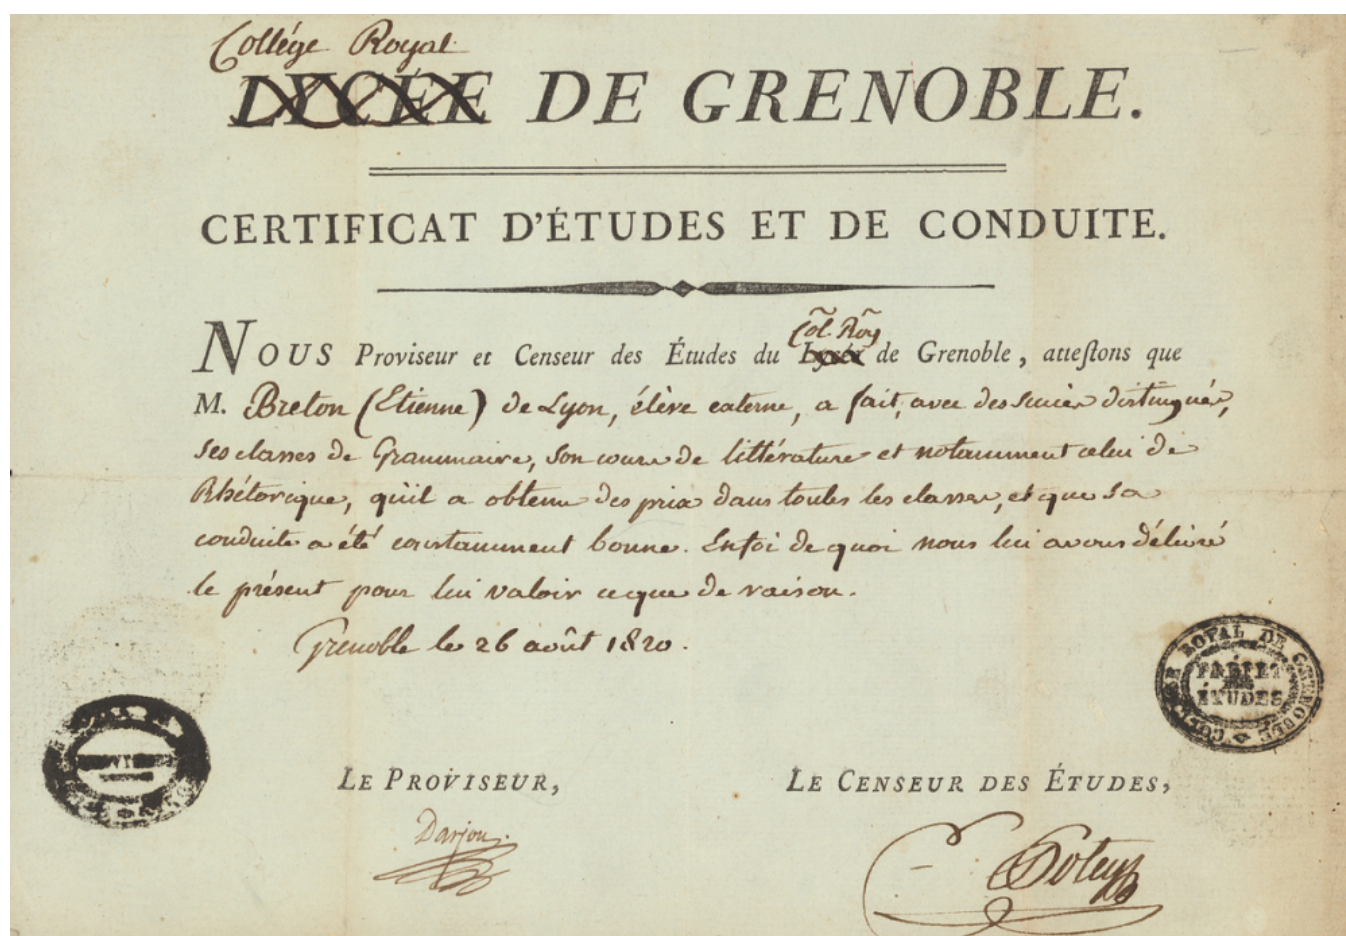 Collége Royal
LYCÉE DE GRENOBLE.
CERTIFICAT D'ÉTUDES ET DE CONDUITE.
Col. Roy
NOUS Proviseur et Censeur des Études du Lycée de Grenoble, atteſtons que
M. Breton (Etienne) de Lyon, élève externe, a fait, avec des succès distingués,
ses classes de Grammaire, son cours de littérature et notamment celui de
Rhétorique, qu'il a obtenu des prix dans toutes les classes, et que sa
conduite a été constamment bonne. En foi de quoi nous lui avons délivré
le présent pour lui valoir ce que de raison.
Grenoble le 26 août 1820.
ROYAL DE GRENOBLE
ÉTUDES
LE PROVISEUR,
LE CENSEUR DES ÉTUDES,
Darjou